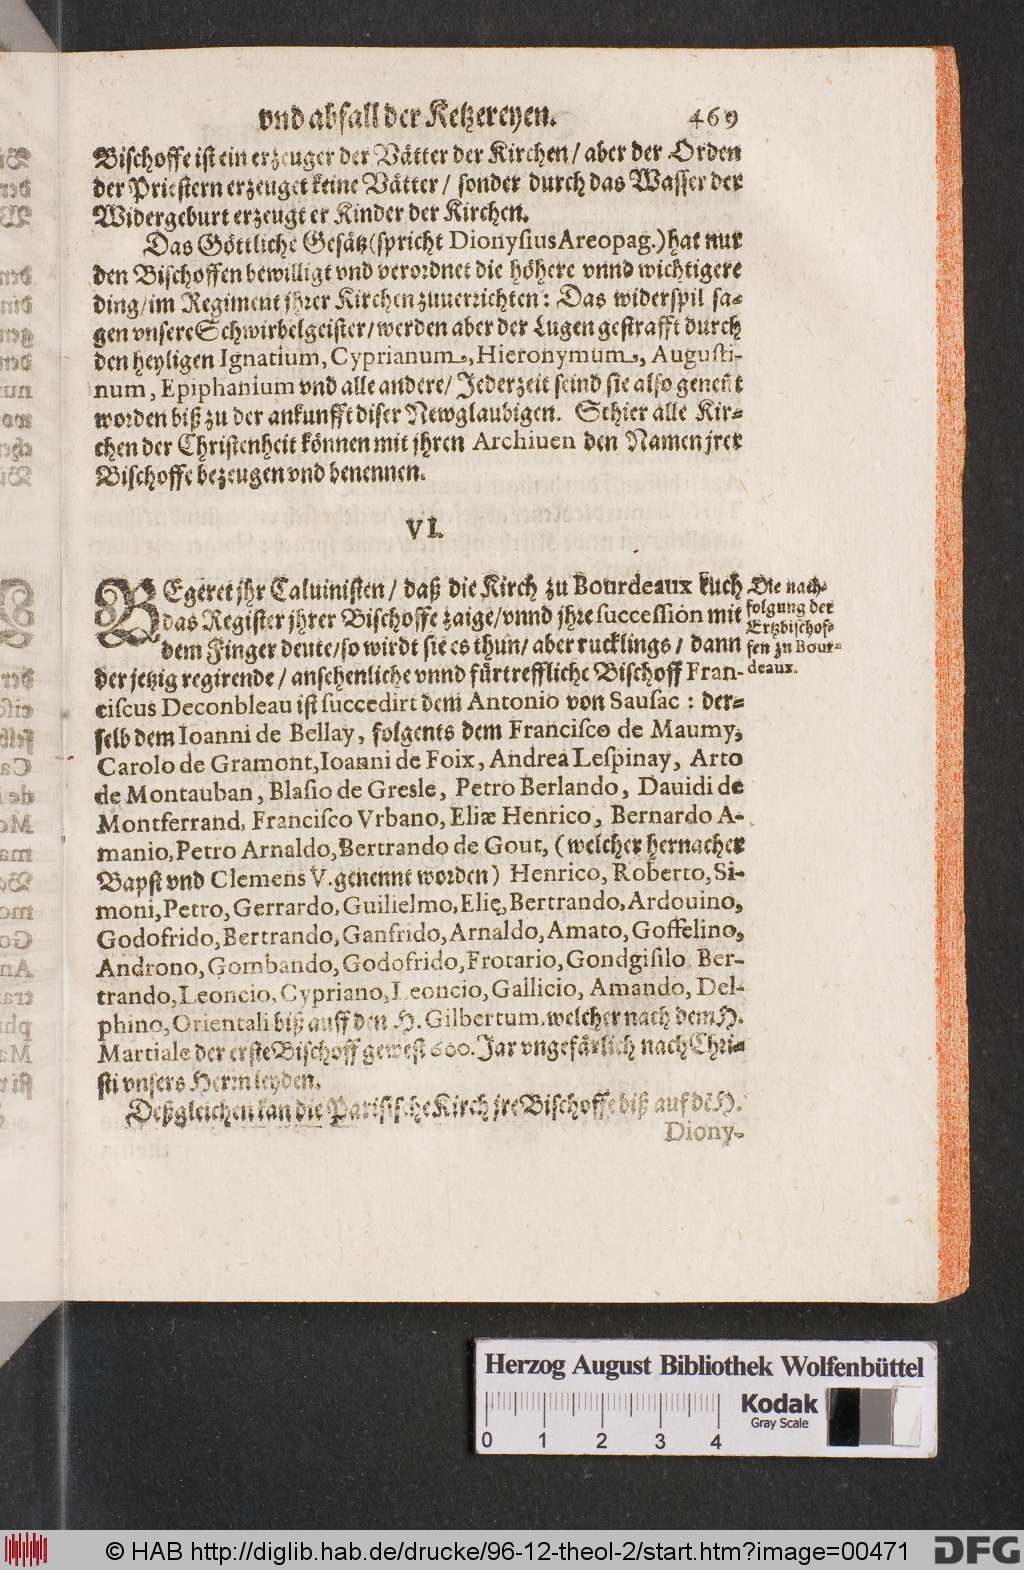 vnd abfall der Ketzereyen. 469
Bischoffe ist ein erzeuger der Vätter der Kirchen / aber der Orden
der Priestern erzeuget keine Vätter / sonder durch das Wasser der
Widergeburt erzeugt er Kinder der Kirchen.
Das Göttliche Gesätz (spricht Dionysius Areopag.) hat nur
den Bischoffen bewilligt vnd verordnet die höhere vnnd wichtigere
ding / im Regiment jhrer Kirchen zuuerrichten: Das widerspil sa-
gen vnsere Schwirbelgeister / werden aber der Lugen gestrafft durch
den heyligen Ignatium, Cyprianum, Hieronymum, Augusti-
num, Epiphanium vnd alle andere / Jederzeit seind sie also geneñt
worden biß zu der ankunfft diser Newglaubigen. Schier alle Kir-
chen der Christenheit können mit jhren Archiuen den Namen jrer
Bischoffe bezeugen vnd benennen.
VI.
BEgeret jhr Caluinisten / daß die Kirch zu Bourdeaux euch
das Register jhrer Bischoffe zaige / vnnd jhre succession mit
dem Finger deute / so wirdt sie es thun / aber rucklings / dann
der jetzig regirende / ansehenliche vnnd fürtreffliche Bischoff Fran-
ciscus Deconbleau ist succedirt dem Antonio von Sausac: der-
selb dem Ioanni de Bellay, folgents dem Francisco de Maumy,
Carolo de Gramont, Ioanni de Foix, Andrea Lespinay, Arto
de Montauban, Blasio de Gresle, Petro Berlando, Dauidi de
Montferrand, Francisco Vrbano, Eliæ Henrico, Bernardo A-
manio, Petro Arnaldo, Bertrando de Gout, (welcher hernacher
Bapst vnd Clemens V. genennt worden) Henrico, Roberto, Si-
moni, Petro, Gerrardo, Guilielmo, Elię, Bertrando, Ardouino,
Godofrido, Bertrando, Ganfrido, Arnaldo, Amato, Gosselino,
Androno, Gombando, Godofrido, Frotario, Gondgisilo Ber-
trando, Leoncio, Cypriano, Leoncio, Gallicio, Amando, Del-
phino, Orientali biß auff den H. Gilbertum, welcher nach dem H.
Martiale der erste Bischoff gewest 600. Jar vngefärlich nach Chri-
sti vnsers Herrn leyden.
Deßgleichen kan die Parisische Kirch jre Bischoffe biß auf dē H.
Diony-
Die nach-
folgung der
Ertzbischof-
fen zu Bour-
deaux.
Herzog August Bibliothek Wolfenbüttel
Kodak
Gray Scale
0 1 2 3 4
© HAB http://diglib.hab.de/drucke/96-12-theol-2/start.htm?image=00471
DFG